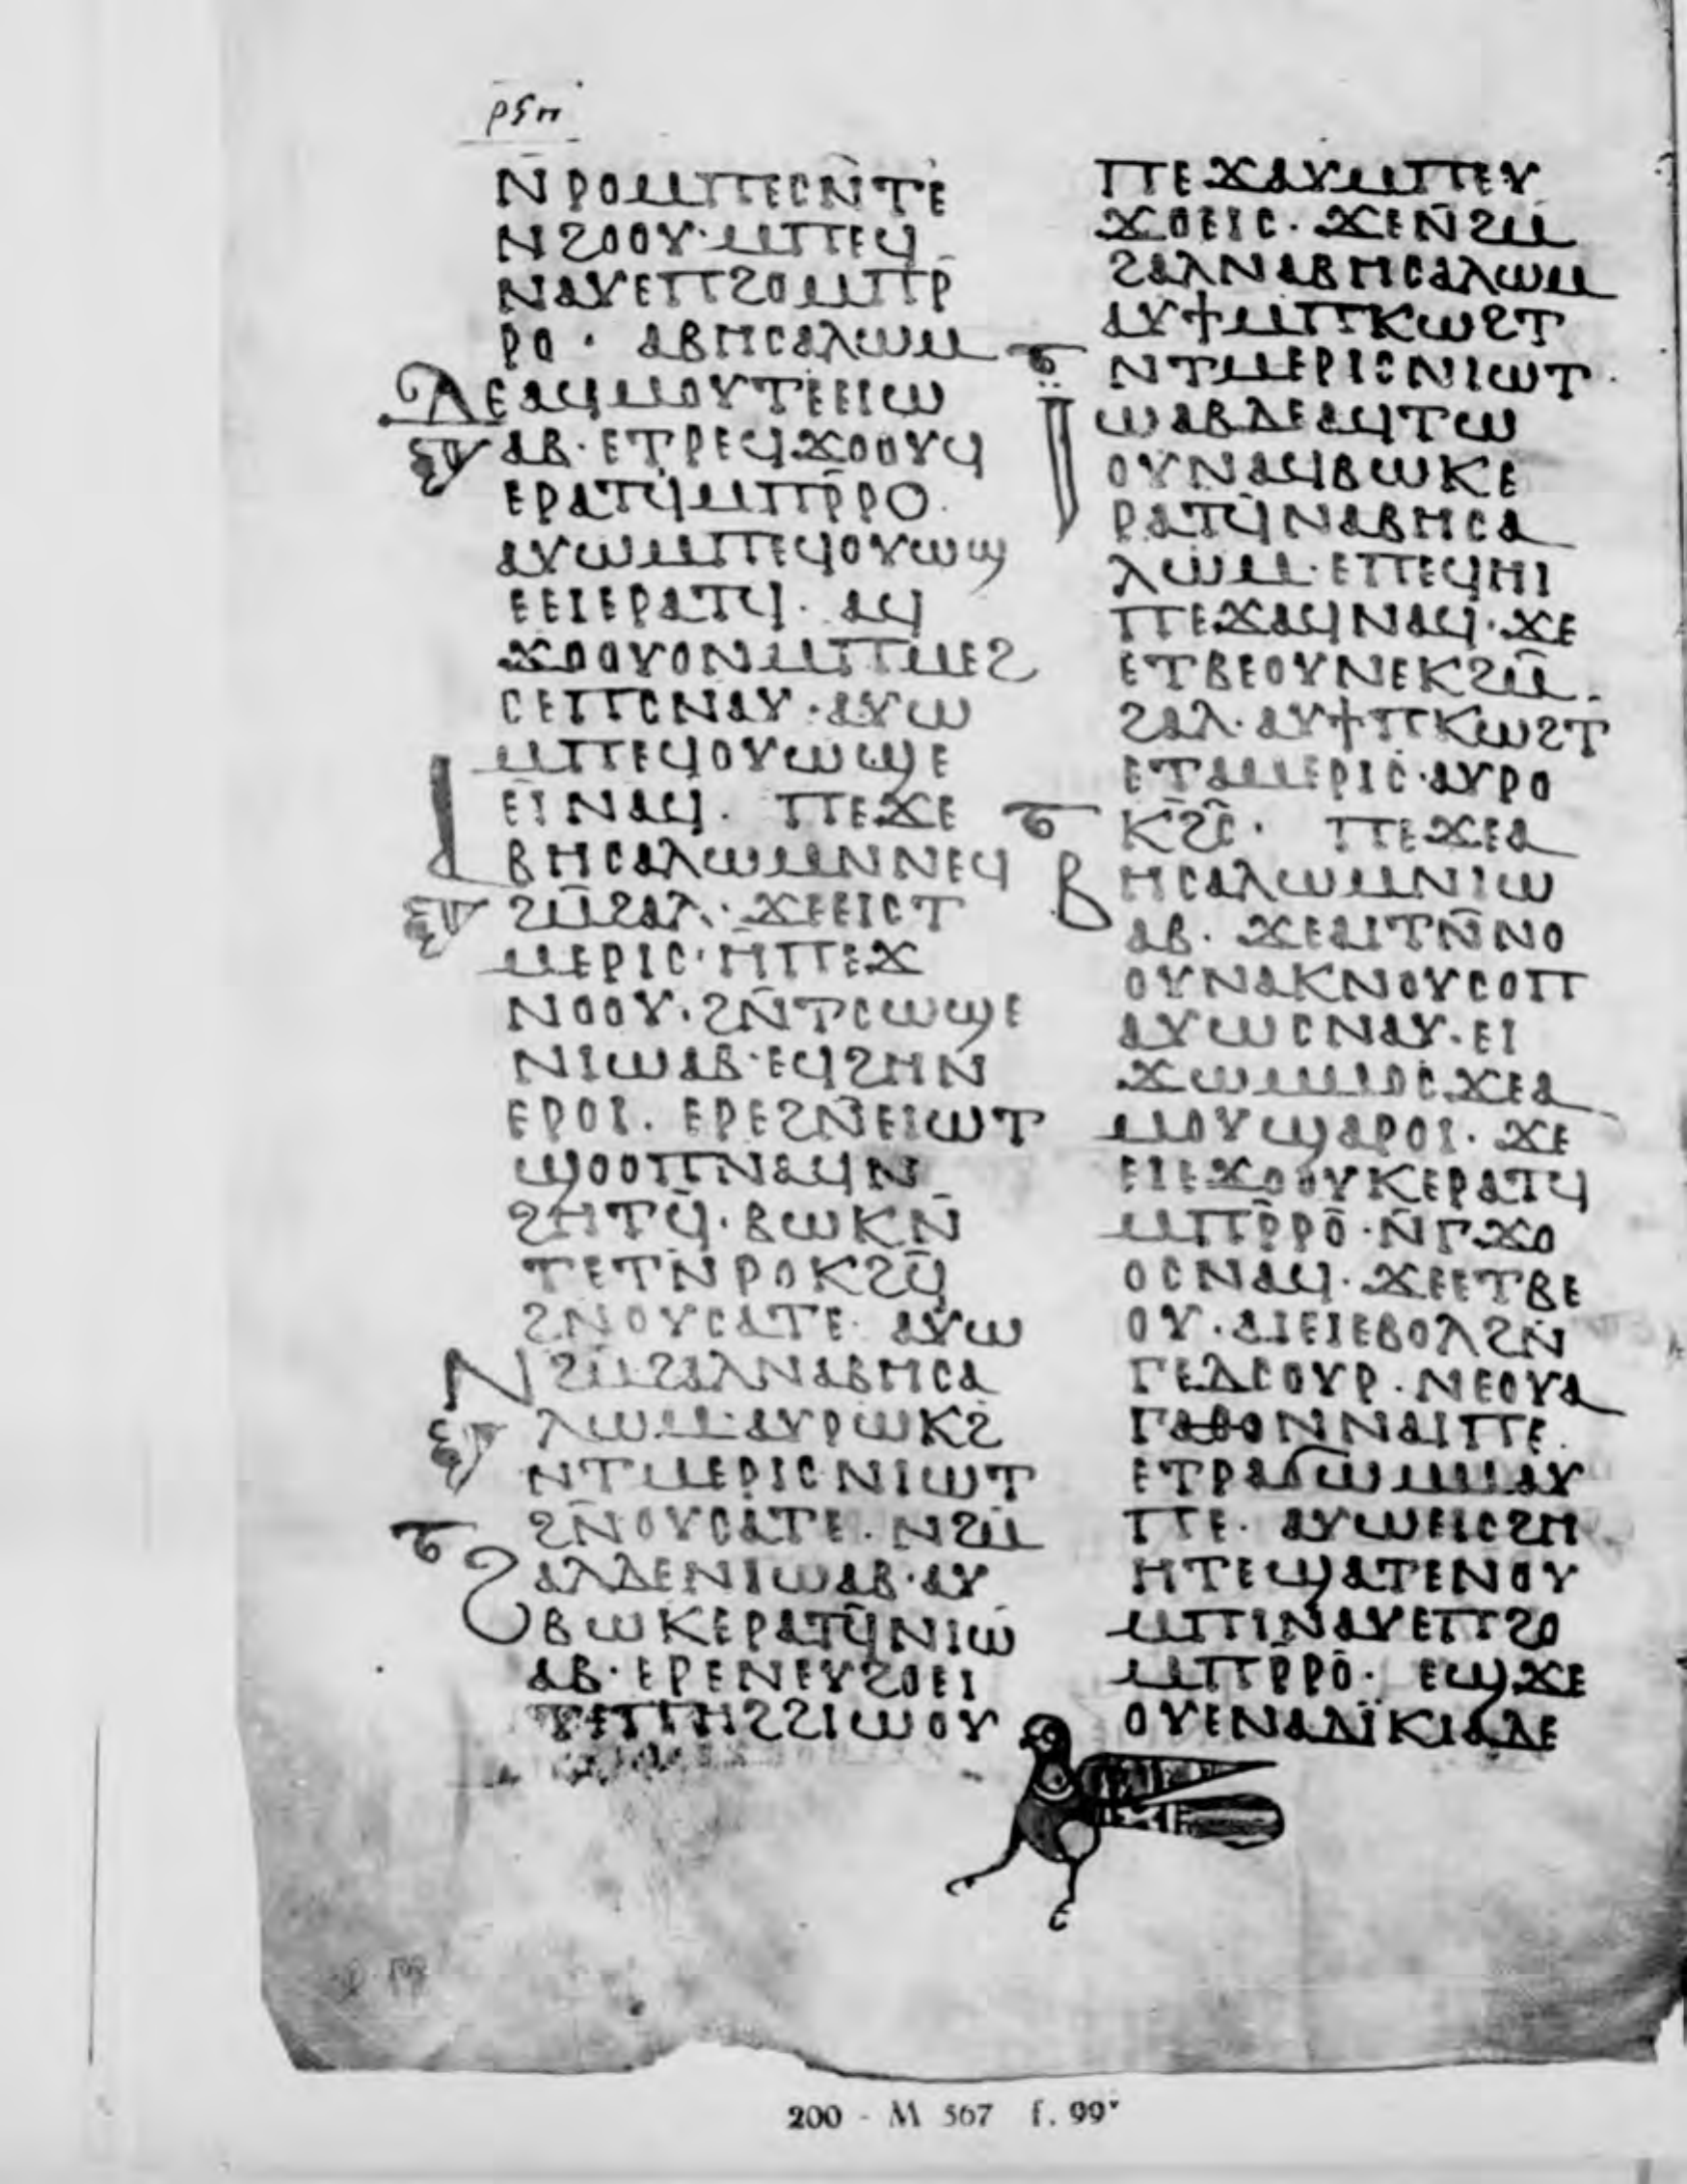 ⲣϥⲏ
ⲛ̄ⲣⲟⲙⲡⲉⲥⲛ̄ⲧⲉ
ⲛϩⲟⲟⲩ·ⲙⲡⲉϥ
ⲛⲁⲩⲉⲡϩⲟⲙⲡⲣ
ⲣⲟ· ⲁⲃⲏⲥⲁⲗⲱⲙ
ⲇⲉⲁϥⲙⲟⲩⲧⲉⲉⲓⲱ
ⲁⲃ·ⲉⲧⲣⲉϥϫⲟⲟⲩϥ
ⲉⲣⲁⲧϥⲙⲡⲣ̄ⲣⲟ·
ⲁⲩⲱⲙⲡⲉϥⲟⲩⲱϣ
ⲉⲉⲓⲉⲣⲁⲧϥ· ⲁϥ
ϫⲟⲟⲩⲟⲛⲙⲡⲙⲉϩ
ⲥⲉⲡⲥⲛⲁⲩ·ⲁⲩⲱ
ⲙⲡⲉϥⲟⲩⲱϣⲉ
ⲉⲓⲛⲁϥ· ⲡⲉϫⲉ
ⲁⲃⲏⲥⲁⲗⲱⲙⲛⲛⲉϥ
ϩⲙ̄ϩⲁⲗ·ϫⲉⲉⲓⲥⲧ
ⲙⲉⲣⲓⲥ·ⲙ̄ⲡⲉϫ
ⲛⲟⲟⲩ·ϩⲛ̄ⲧⲥⲱϣⲉ
ⲛⲓⲱⲁⲃ·ⲉϥϩⲏⲛ
ⲉⲣⲟⲓ·ⲉⲣⲉϩⲛ̄ⲉⲓⲱⲧ
ϣⲟⲟⲡⲛⲁϥⲛ
ϩⲏⲧϥ̄·ⲃⲱⲕⲛ̄
ⲧⲉⲧⲛ̄ⲣⲟⲕϩϥ̄
ϩⲛⲟⲩⲥⲁⲧⲉ·ⲁⲩⲱ
ⲛϩⲙ̄ϩⲁⲗⲛⲁⲃⲏⲥⲁ
ⲗⲱⲙ·ⲁⲩⲣⲱⲕϩ
ⲛⲧⲙⲉⲣⲓⲥⲛⲓⲱⲧ
ϩⲛ̄ⲟⲩⲥⲁⲧⲉ·ⲛϩⲙ̄
ϩⲁⲗⲇⲉⲛⲓⲱⲁⲃ·ⲁⲩ
ⲃⲱⲕⲉⲣⲁⲧϥ̄ⲛⲓⲱ
ⲁⲃ·ⲉⲣⲉⲛⲉⲩϩⲟⲉⲓ
ⲧⲉⲡⲏϩϩⲓⲱⲟⲩ
ⲡⲉϫⲁⲩⲙⲡⲉⲩ
ϫⲟⲉⲓⲥ·ϫⲉⲛ̄ϩⲙ̄
ϩⲁⲗⲛⲁⲃⲏⲥⲁⲗⲱⲙ
ⲁⲩϯⲙⲡⲕⲱϩⲧ
ⲛⲧⲙⲉⲣⲓⲥⲛⲓⲱⲧ·
ⲓⲱⲁⲃⲇⲉⲁϥⲧⲱ
ⲟⲩⲛⲁϥⲃⲱⲕⲉ
ⲣⲁⲧϥ̄ⲛⲁⲃⲏⲥⲁ
ⲗⲱⲙ·ⲉⲡⲉϥⲏⲓ
ⲡⲉϫⲁϥⲛⲁϥ·ϫⲉ
ⲉⲧⲃⲉⲟⲩⲛⲉⲕϩⲙ̄
ϩⲁⲗ·ⲁⲩϯⲡⲕⲱϩⲧ
ⲉⲧⲁⲙⲉⲣⲓⲥ·ⲁⲩⲣⲟ
ⲕϩ̄ⲥ̄· ⲡⲉϫⲉⲁ
ⲃⲏⲥⲁⲗⲱⲙⲛⲓⲱ
ⲁⲃ·ϫⲉⲁⲓⲧⲛ̄ⲛⲟ
ⲟⲩⲛⲁⲕⲛⲟⲩⲥⲟⲡ
ⲁⲩⲱⲥⲛⲁⲩ·ⲉⲓ
ϫⲱⲙⲙⲟⲥϫⲉⲁ
ⲙⲟⲩϣⲁⲣⲟⲓ·ϫⲉ
ⲉⲓⲉϫⲟⲟⲩⲕⲉⲣⲁⲧϥ
ⲙⲡⲣ̄ⲣⲟ·ⲛ̄ⲅϫⲟ
ⲟⲥⲛⲁϥ·ϫⲉⲉⲧⲃⲉ
ⲟⲩ·ⲁⲓⲉⲓⲉⲃⲟⲗϩⲛ̄
ⲅⲉⲇⲥⲟⲩⲣ·ⲛⲉⲟⲩⲁ
ⲅⲁⲑⲟⲛⲛⲁⲓⲡⲉ·
ⲉⲧⲣⲁϭⲱⲙⲙⲁⲩ
ⲡⲉ· ⲁⲩⲱⲉⲓⲥϩⲏ
ⲏⲧⲉϣⲁⲧⲉⲛⲟⲩ
ⲙⲡⲓⲛⲁⲩⲉⲡϩⲟ
ⲙⲡⲣ̄ⲣⲟ· ⲉϣϫⲉ
ⲟⲩⲉⲛⲁⲇⲓ̈ⲕⲓⲁⲇⲉ
200 - M 567 f. 99ᵛ